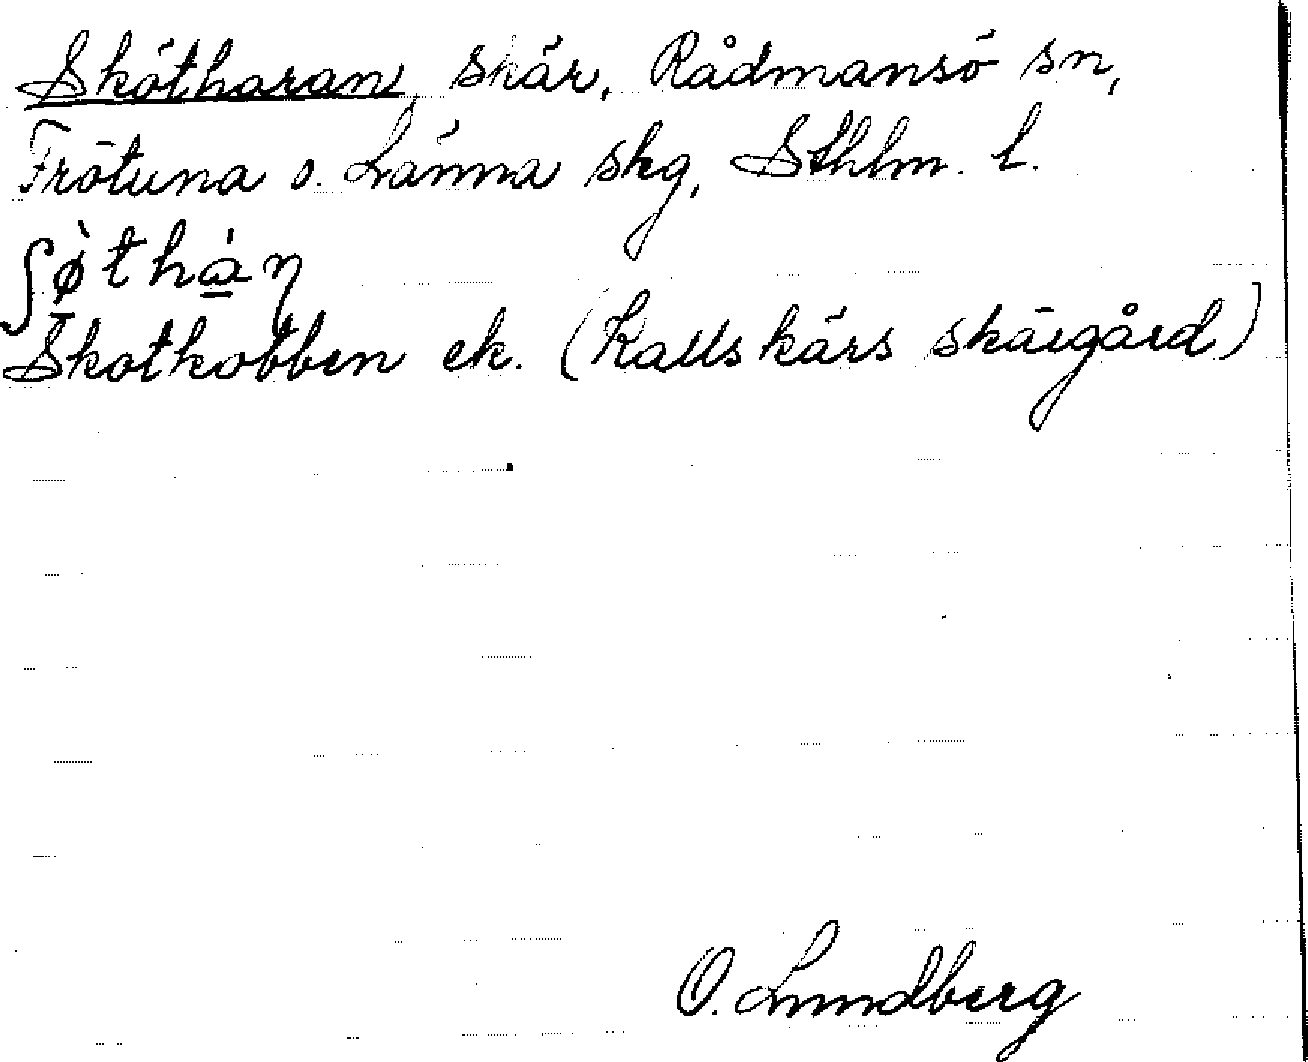 Skötharan, skär, Rådmansö sn,
Frötuna o. Länna skg, Sthlm. l.
ʃø̀thàṇ
Skotkobben ek. (Kallskärs skärgård)
O. Lundberg